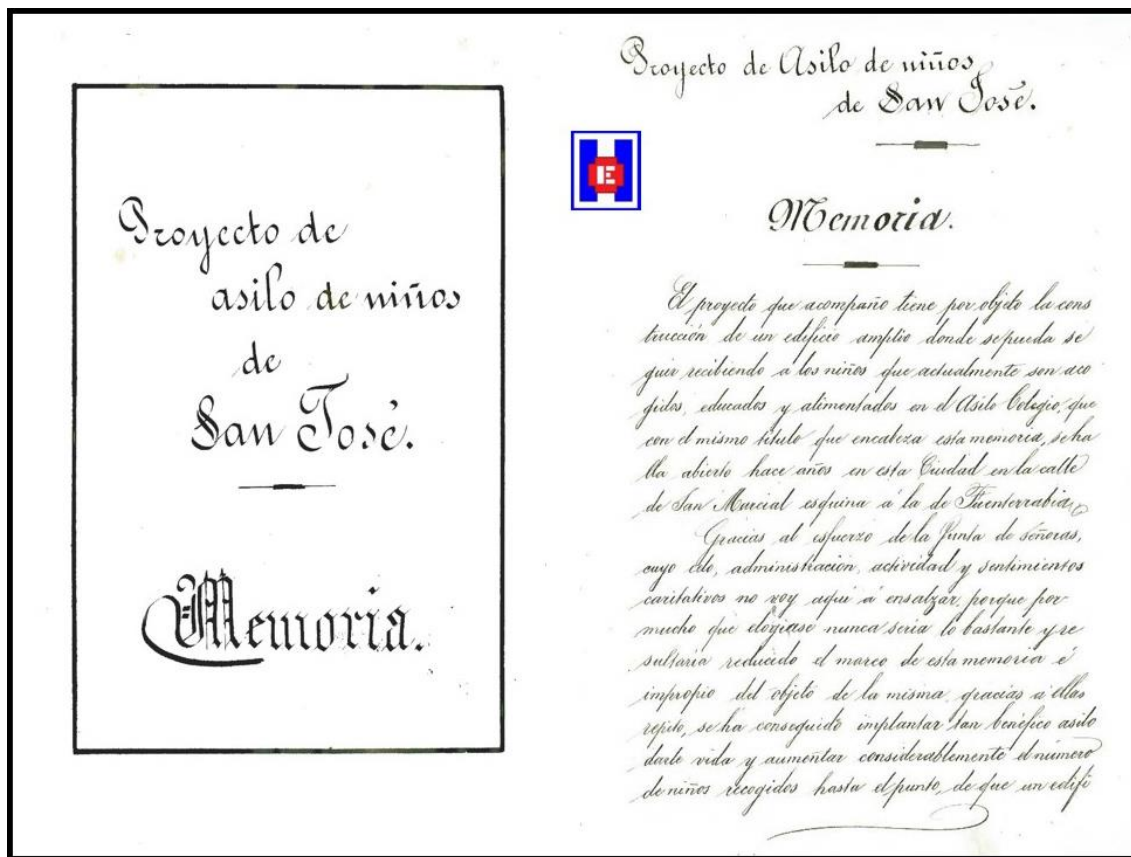 Proyecto de
asilo de niños
de
San José.
Memoria.
Proyecto de Asilo de niños
de San José.
HE
Memoria.
El proyecto que acompaño tiene por objeto la cons
trucción de un edificio amplio donde se pueda se
guir recibiendo a los niños que actualmente son aco
gidos, educados y alimentados en el Asilo Colegio, que
con el mismo título que encabeza esta memoria, se ha
lla abierto hace años en esta Ciudad en la calle
de San Marcial esquina á la de Fuenterrabia,
Gracias al esfuerzo de la Junta de señoras,
cuyo celo, administración, actividad y sentimientos
caritativos no voy aquí á ensalzar, porque por
mucho que elogiase nunca seria lo bastante y re
sultaria reducido el marco de esta memoria é
impropio del objeto de la misma, gracias a ellas
repito, se ha conseguido implantar tan benéfico asilo
darle vida y aumentar considerablemente el número
de niños recogidos hasta el punto, de que un edifi